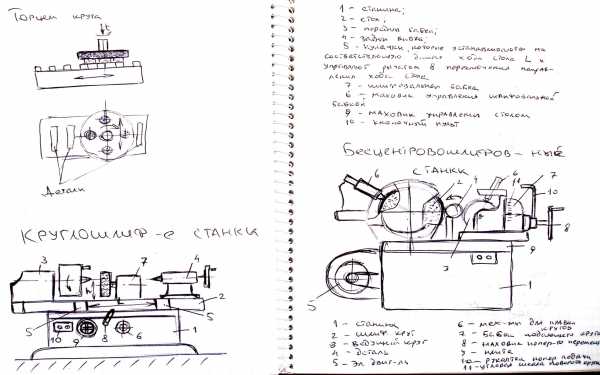 Торцем круга
Детали
КРУГЛОШЛИФ-е СТАНКИ
3
7
4
2
5
5
1
10
9
8
6
1 - станина;
2 - стол;
3 - передняя бабка;
4 - задняя бабка;
5 - кулачки, которые устанавливаются на
соответствующую длину хода стола L и
управляют
переключения направ-
ления хода стола
7 - шлифовальная бабка
6 - маховик управления шлифовальной
бабкой
9 - маховик управления столом
10 - кнопочный пульт
БЕСЦЕНТРОВОШЛИФОВ-НЫЕ
СТАНКИ
6
2
4
6
11
7
10
8
3
9
5
1
1 - станина
2 - шлиф круг
3 - Ведущий круг
4 - деталь
5 - Эл двиг-ль
6 - мех-мы для правки
кругов
7 - Бабка ведущего круга
8 - маховик попер-го перемещ
9 - плита
10 - рукоятка попер подачи
11 - угловая шкала поворота круга